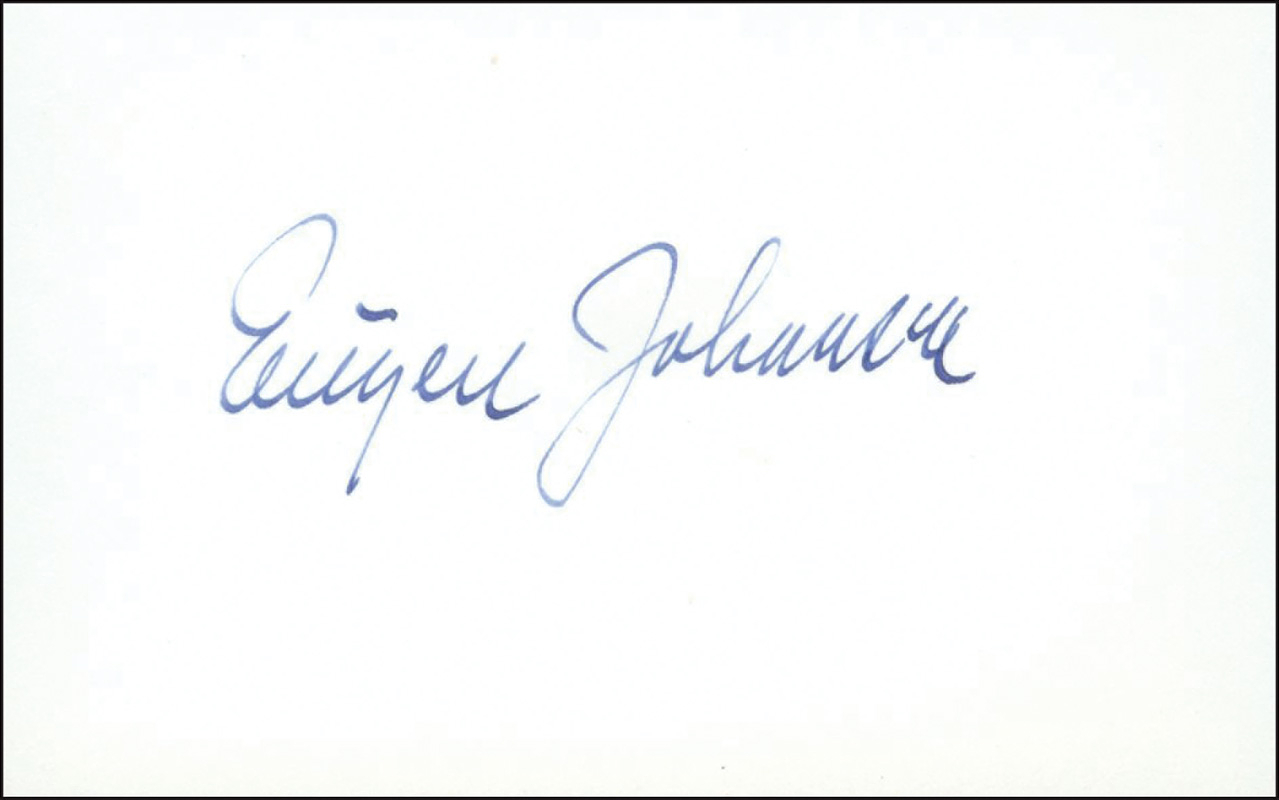 Eugen Johansen